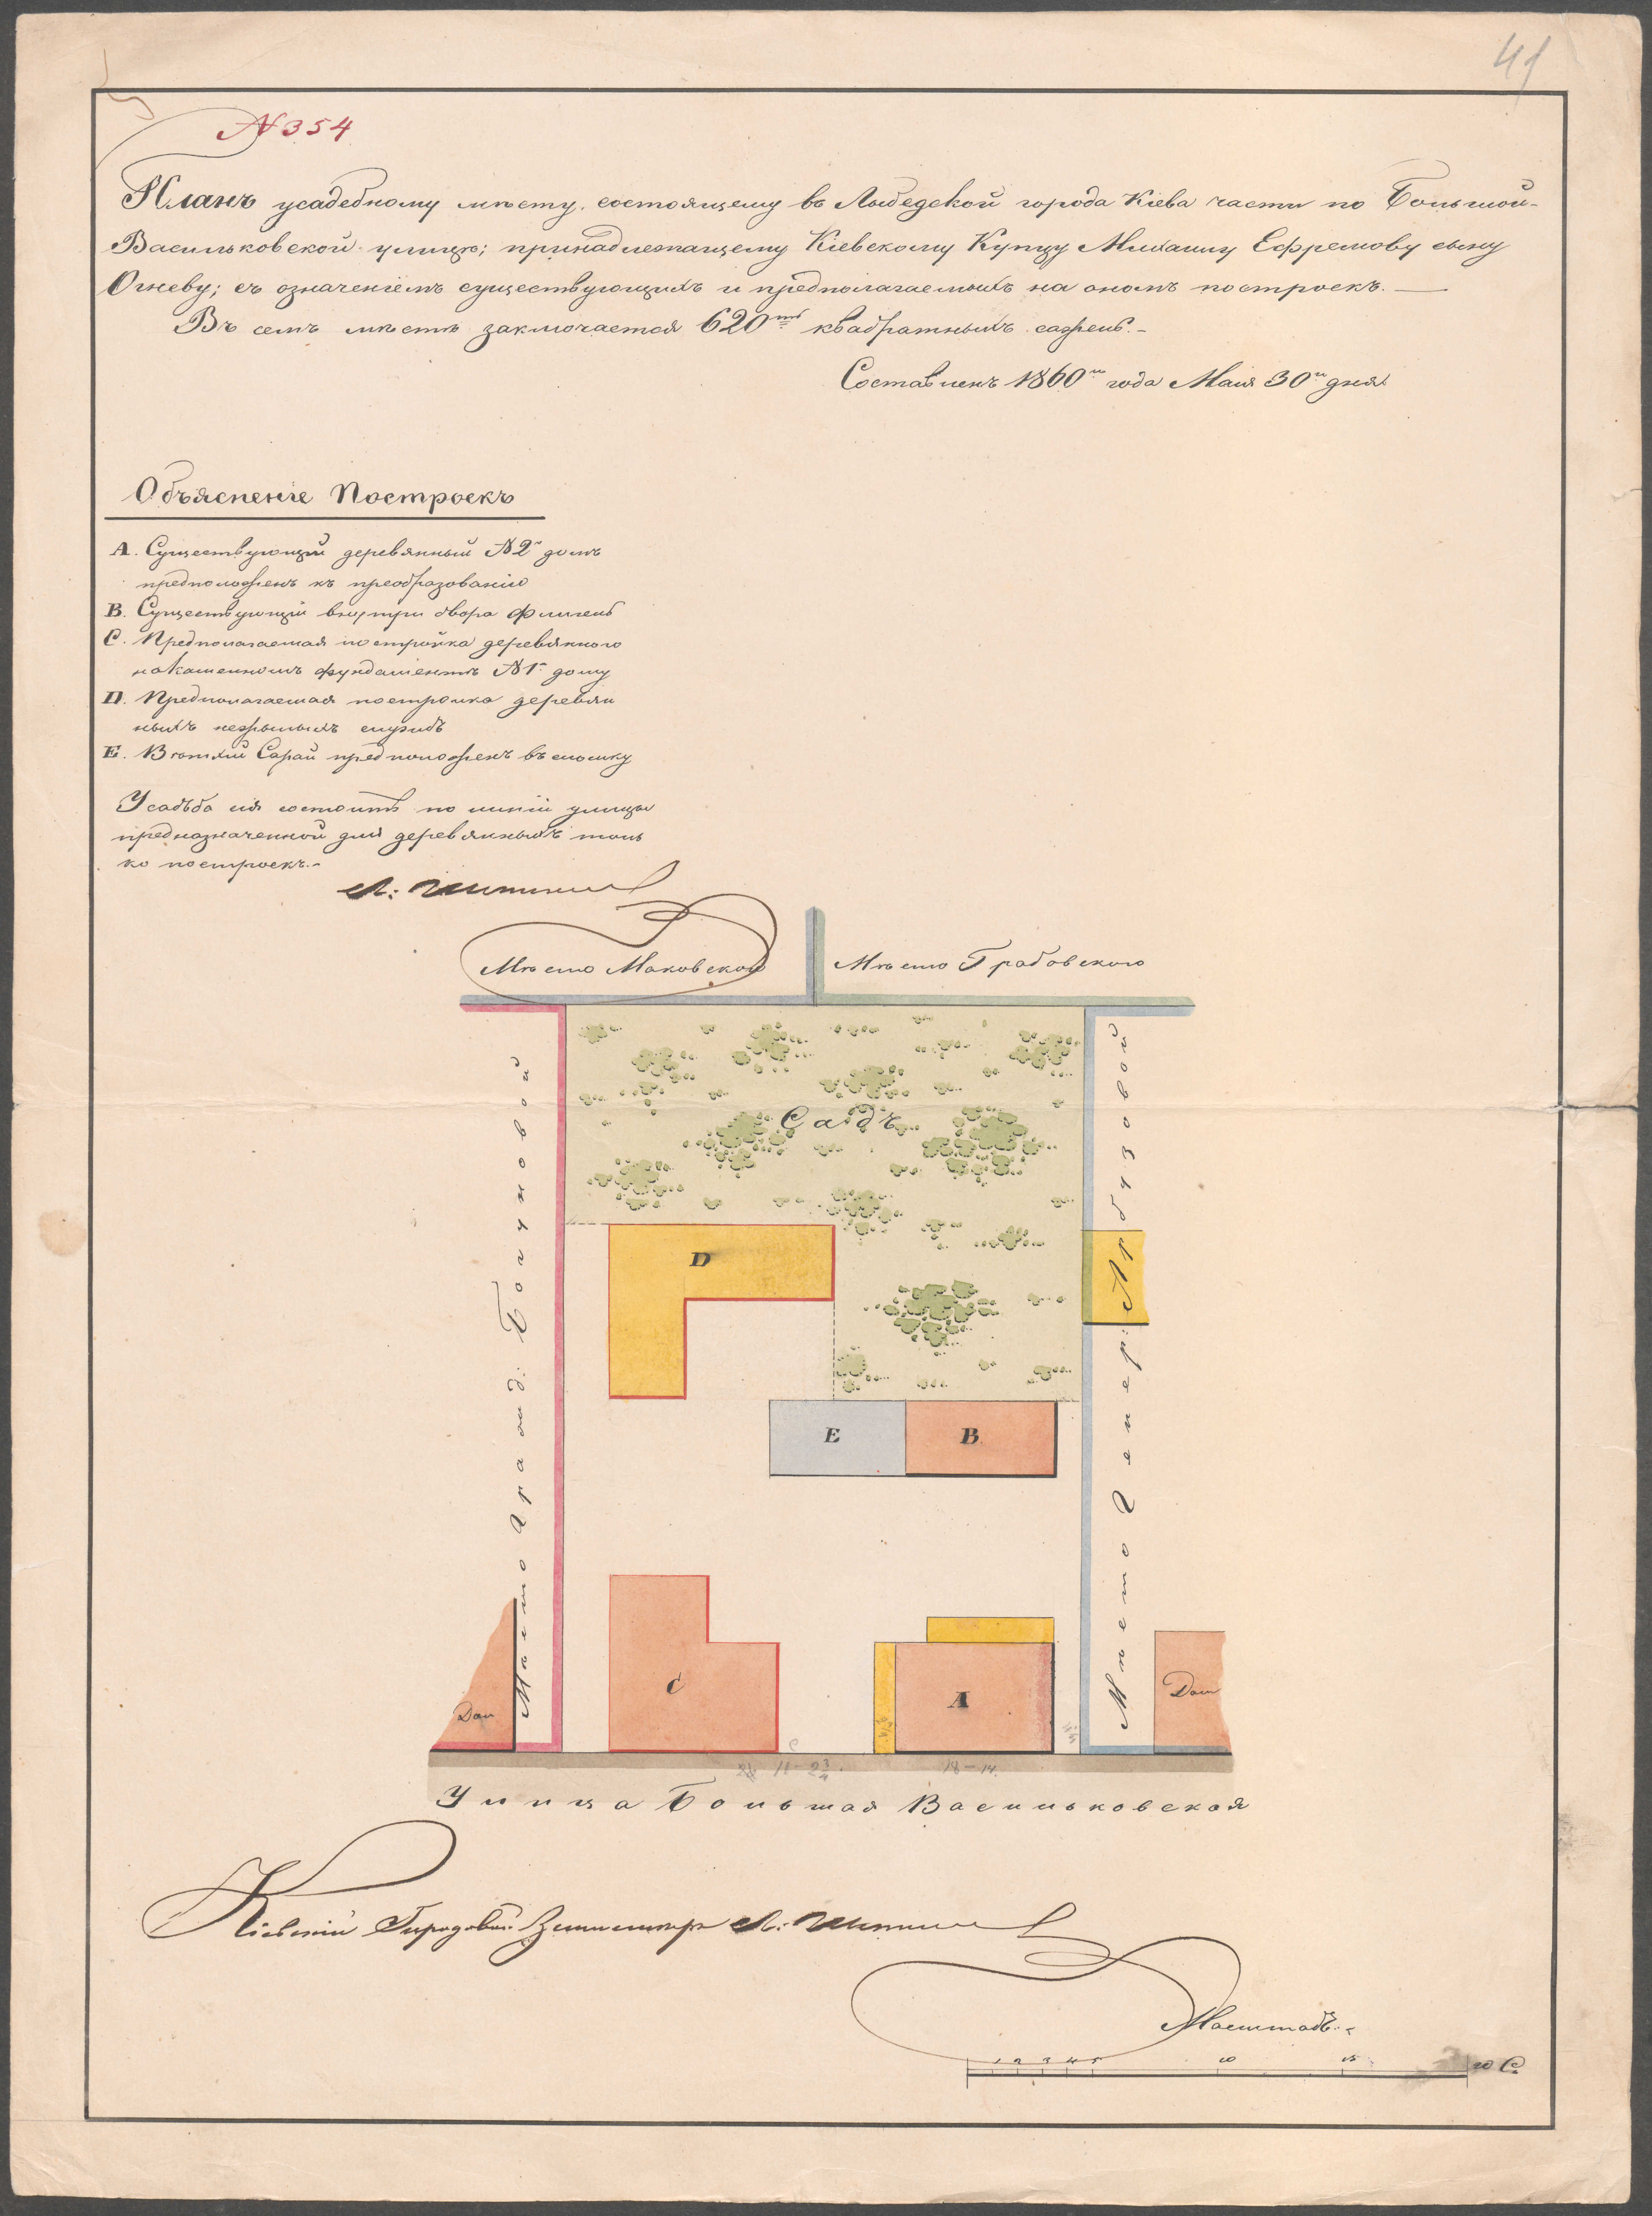 41
№ 354
Планъ усадебному мѣсту, состоящему въ Лыбедской города Кіева части по Большой-
Васильковской улицѣ; принадлежащему Кіевскому Купцу Михаилу Ефремову сыну
Огневу; съ означеніемъ существующихъ и предполагаемыхъ на ономъ построекъ. —
Въ семъ мѣстѣ заключается 620ть квадратныхъ саженъ. -
Составленъ 1860го года Маія 30го дня.
Объясненіе Построекъ
A. Существующій деревянный №2й домъ
предположенъ къ преобразованію
B. Существующій внутри двора флигель
C. Предполагаемая постройка деревянного
на каменномъ фундаментѣ №1й дому
D. Предполагаемая постройка деревян
ныхъ нежилыхъ службъ
E. Ветхій Сарай предположенъ въ сломку
Усадьба сія состоитъ по линіи улицы
предназначенной для деревянныхъ толь
ко построекъ. -
Мѣсто Маковского
Мѣсто Грабовского
Садъ
D
E
B
C
A
Дом
Дом
Мѣсто
Мѣсто Инженер: Арбузовой
18-14.
Улица Большая Васильковская
Кіевскій Городовой Землемѣръ
Масштабъ.
1 2 3 4 5 10 15 20 С.